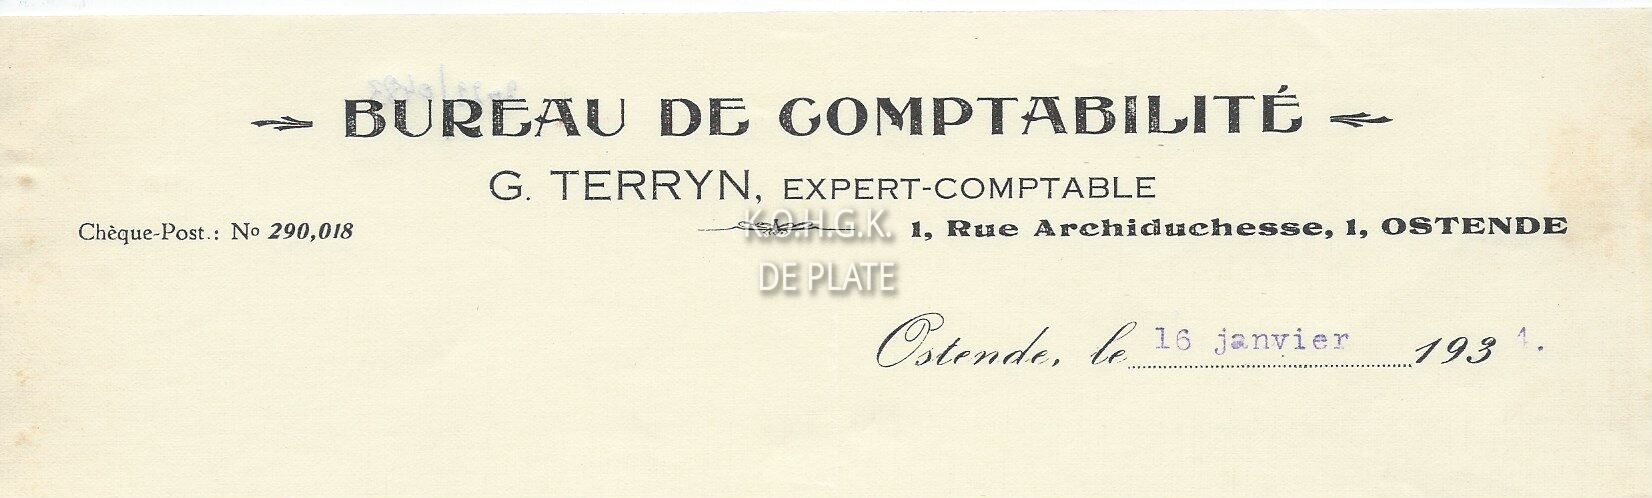 BUREAU DE COMPTABILITÉ
G. TERRYN, EXPERT-COMPTABLE
Chèque-Post.: No 290,018
1, Rue Archiduchesse, 1, OSTENDE
K.O.H.G.K.
DE PLATE
Ostende, le 16 janvier 1934.